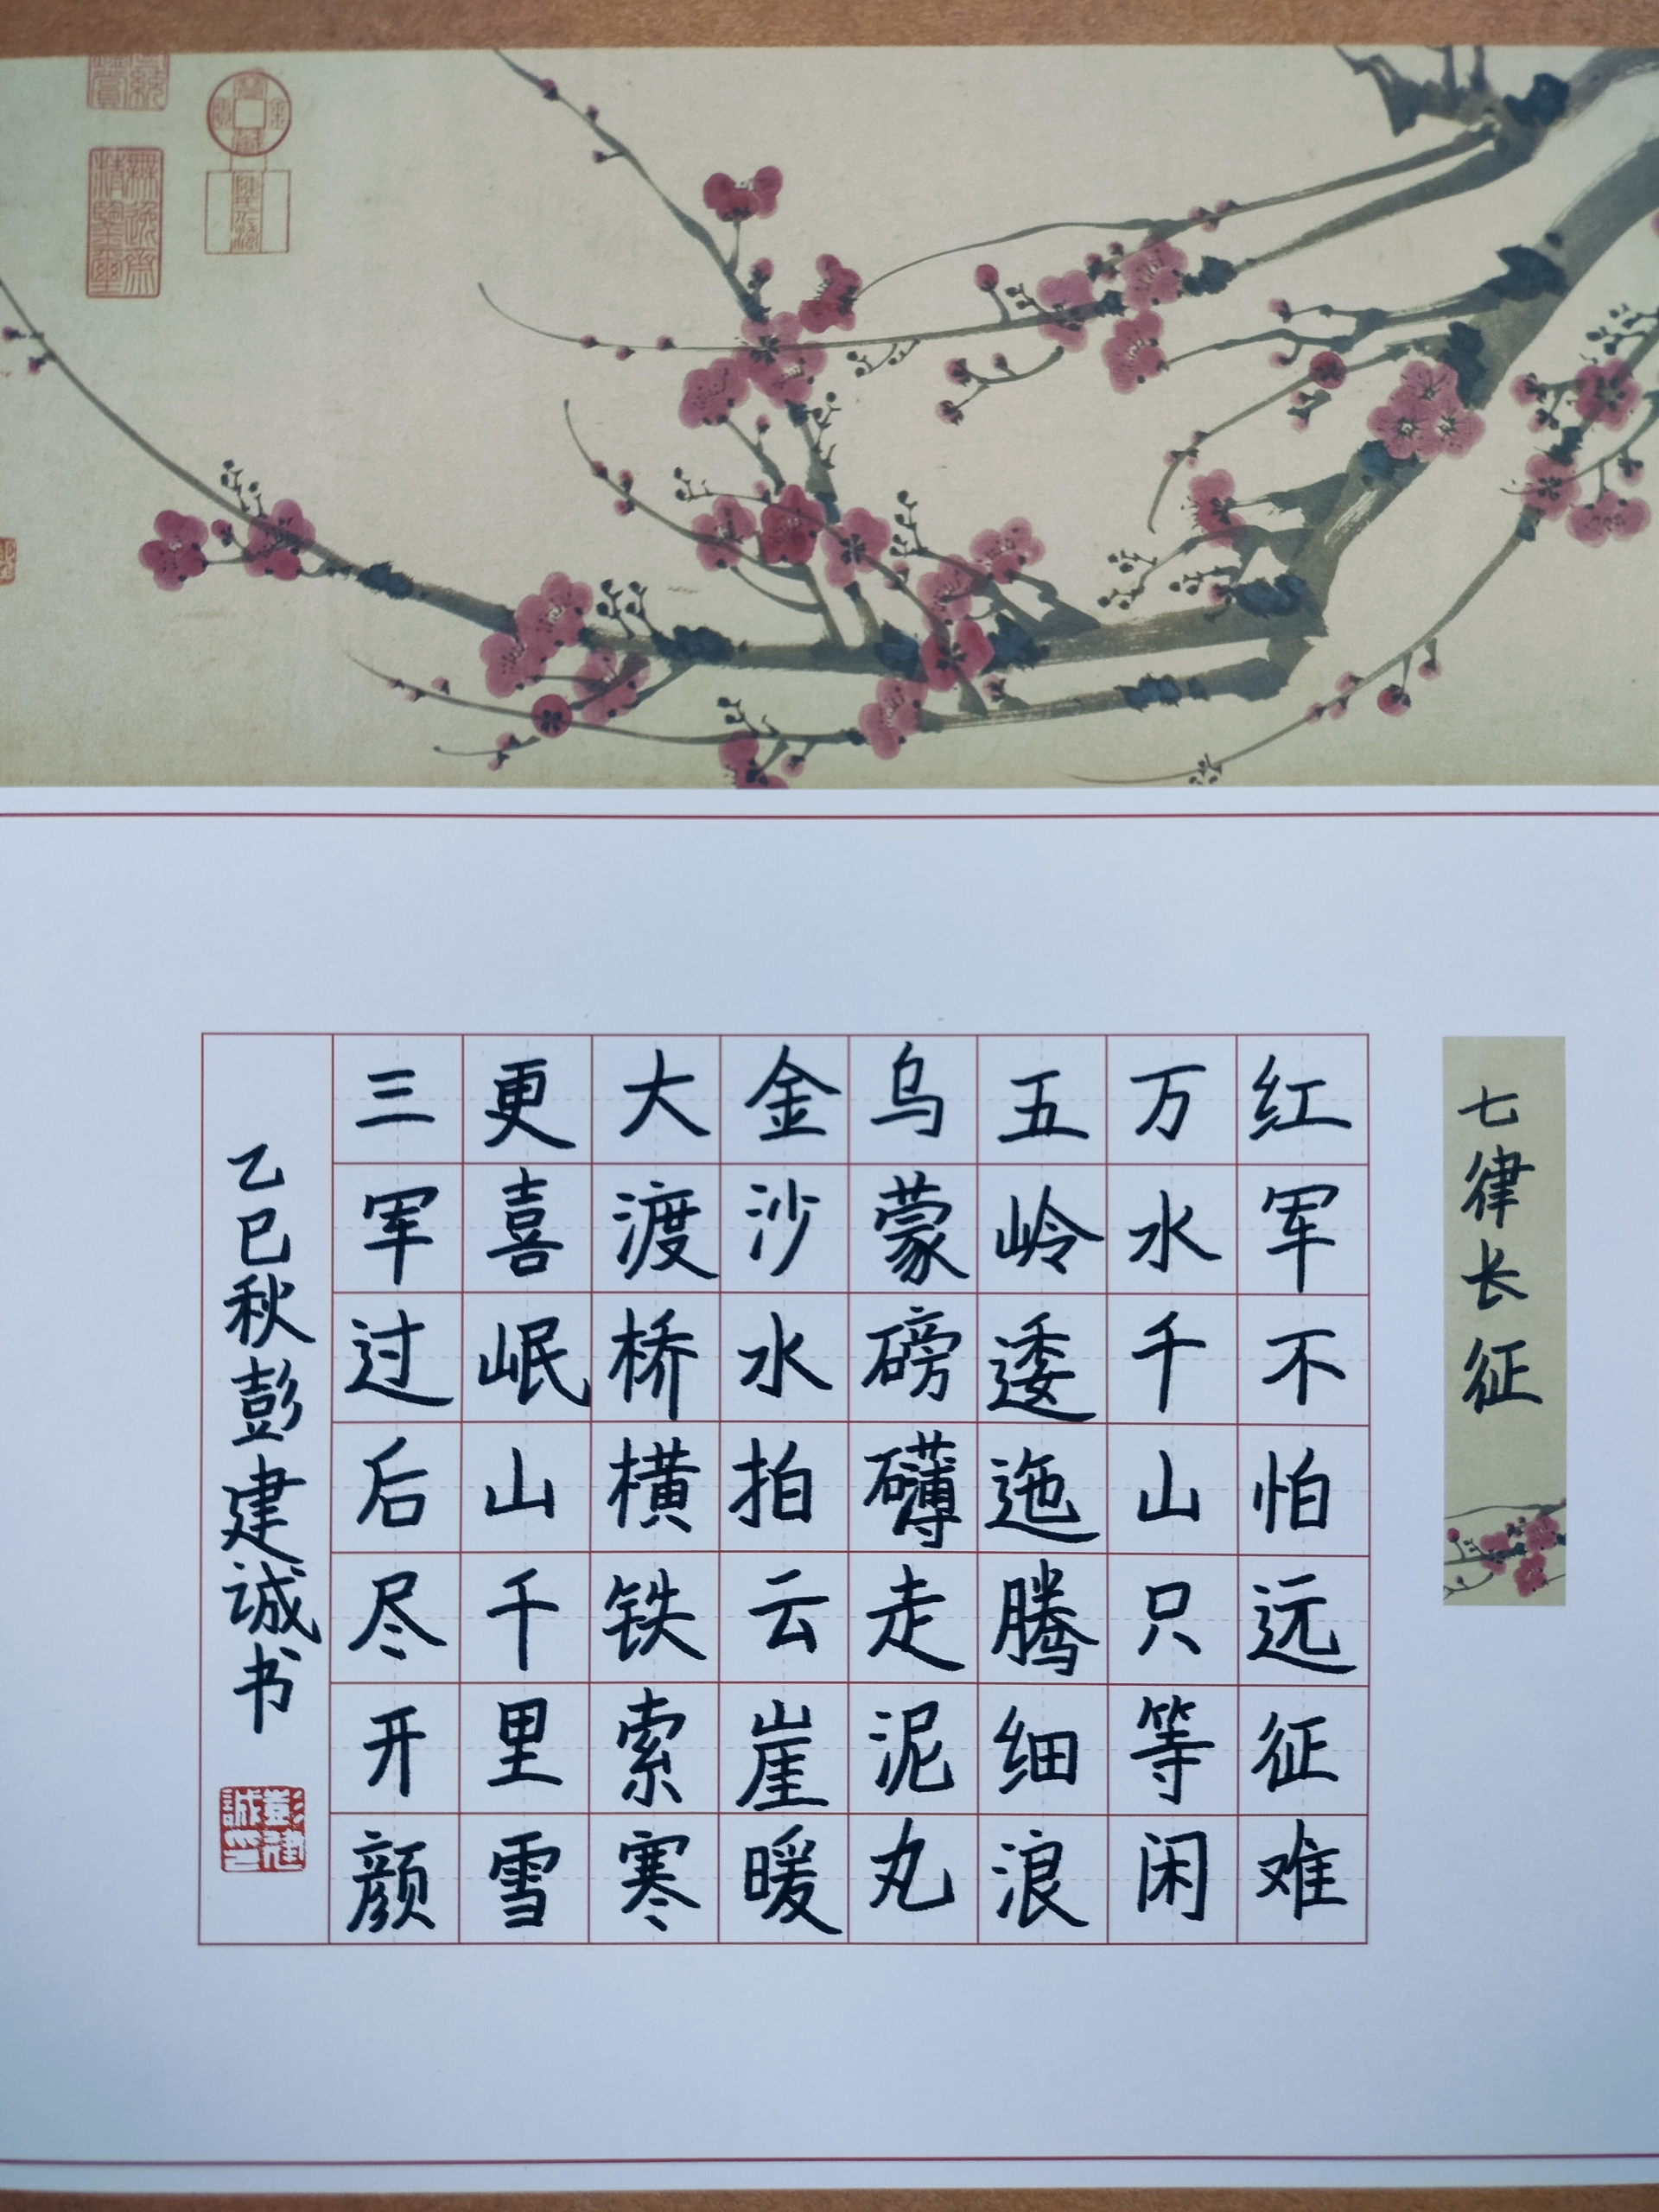 七律长征
红军不怕远征难
万水千山只等闲
五岭逶迤腾细浪
乌蒙磅礴走泥丸
金沙水拍云崖暖
大渡桥横铁索寒
更喜岷山千里雪
三军过后尽开颜
乙巳秋彭建诚书
彭建誠印
無逸齋精鑒璽